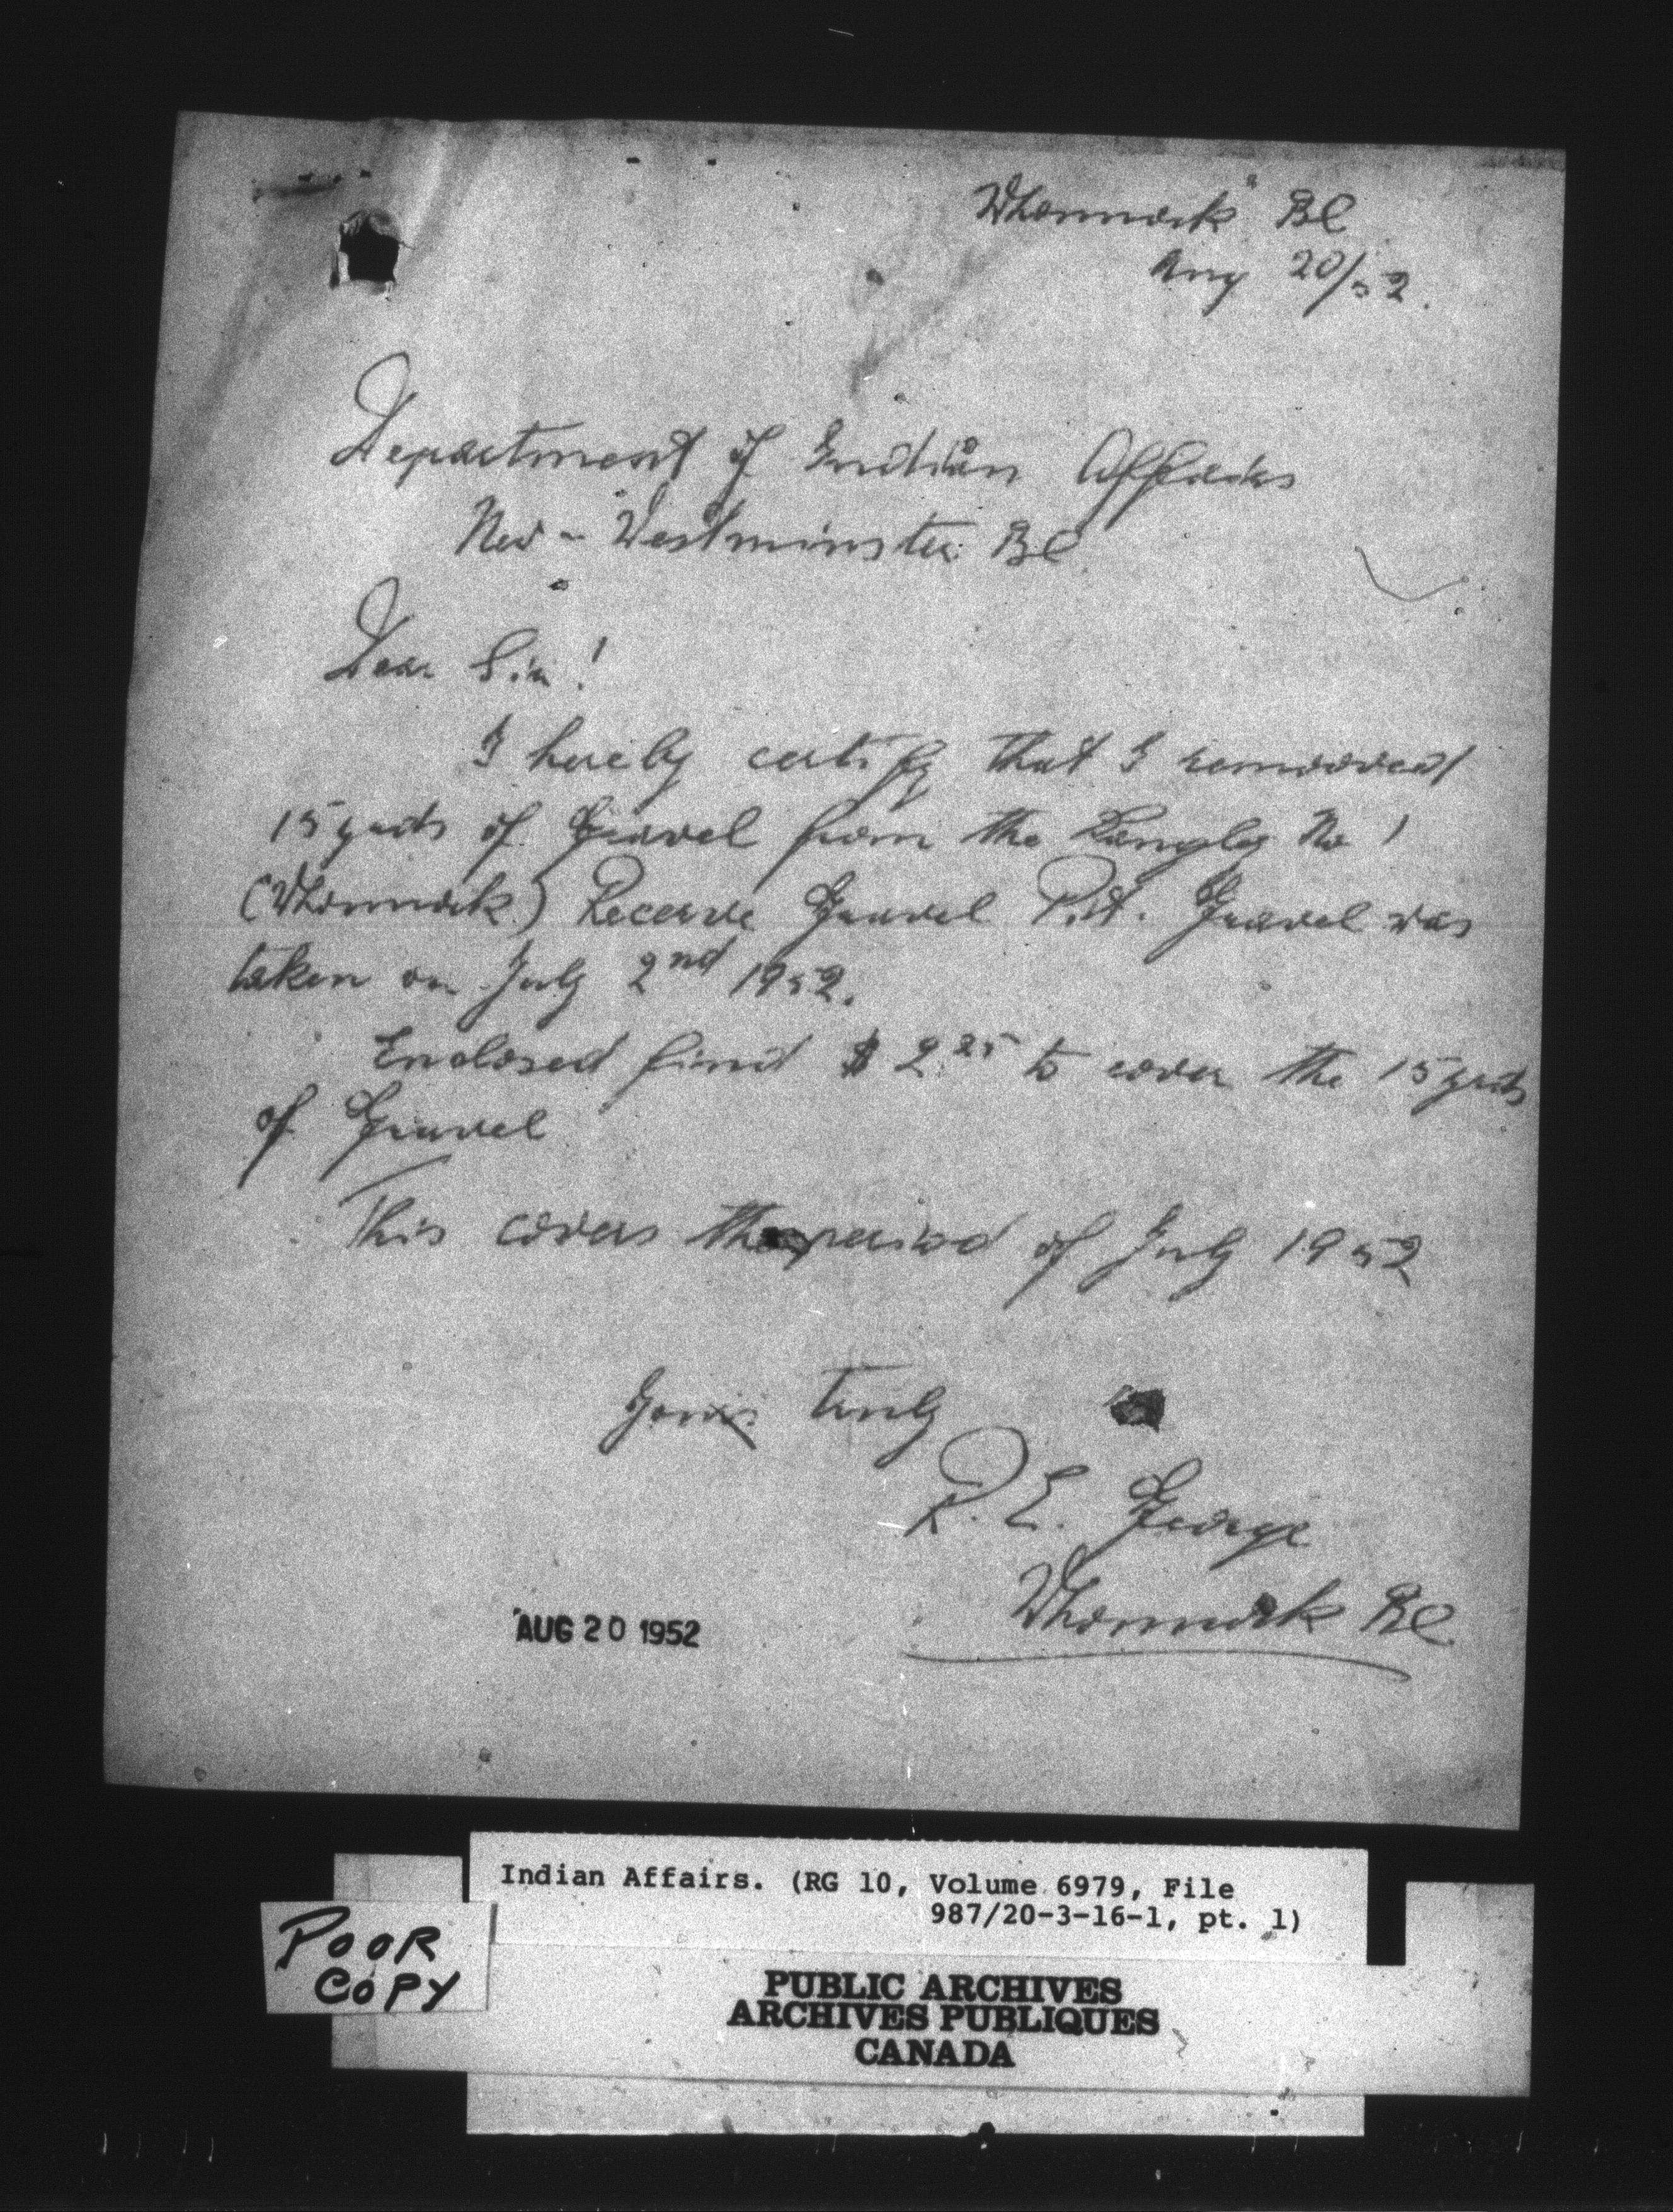 Whonnock BC
Aug 20/52.
Department of Indian Affairs
New-Westminster BC
Dear Sir!
I hereby certify that I removed
15 yards of Gravel from the Langley No 1
(Whonnock) Recerve Gravel Pit. Gravel was
taken on July 2nd 1952.
Enclosed find $ 2.25 to cover the 15 yrds
of Gravel
This covers the period of July 1952
Yours truly
R. E. George
Whonnock BC
AUG 20 1952
Indian Affairs. (RG 10, Volume 6979, File
987/20-3-16-1, pt. 1)
POOR
COPY
PUBLIC ARCHIVES
ARCHIVES PUBLIQUES
CANADA